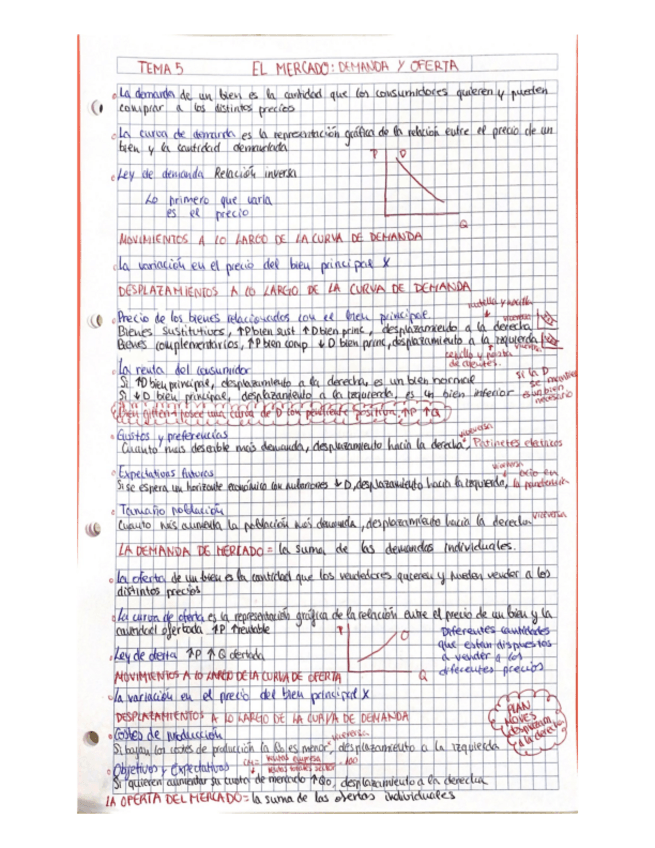 TEMA 5 EL MERCADO: DEMANDA Y OFERTA
La demanda de un bien es la cantidad que los consumidores quieren y pueden
comprar a los distintos precios
La curva de demanda es la representación gráfica de la relación entre el precio de un
bien y la cantidad demandada
P D
Ley de demanda Relación inversa
Lo primero que varía
es el precio
Q
MOVIMIENTOS A LO LARGO DE LA CURVA DE DEMANDA
La variación en el precio del bien principal X
DESPLAZAMIENTOS A LO LARGO DE LA CURVA DE DEMANDA
Precio de los bienes relacionados con el bien principal.
Bienes sustitutivos, ↑P bien sust ↑D bien princ, desplazamiento a la derecha
Bienes complementarios, ↑P bien comp ↓D bien princ, desplazamiento a la izquierda
cepillo y pasta
de dientes.
La renta del consumidor
Si ↑D bien principal, desplazamiento a la derecha, es un bien normal
Si ↓D bien principal, desplazamiento a la izquierda, es un bien inferior
si la D
se mantiene
es un bien
necesario
Bien giffen → posee una curva de D con pendiente positiva, ↑P ↑Q
Gustos y preferencias viceversa
Cuanto más deseable más demanda, desplazamiento hacia la derecha, Patinetes eléctricos
Expectativas futuras viceversa
Si se espera un horizonte económico con ↓D, desplazamiento hacia la izquierda, la pandemia
Tamaño población
Cuanto más aumenta la población más demanda, desplazamiento hacia la derecha viceversa
LA DEMANDA DE MERCADO = la suma de las demandas individuales.
La oferta de un bien es la cantidad que los vendedores quieren y pueden vender a los
distintos precios
La curva de oferta es la representación gráfica de la relación entre el precio de un bien y la
cantidad ofertada ↑P ↑rentable
P O
Diferentes cantidades
que están dispuestos
a vender a los
diferentes precios
Ley de oferta ↑P ↑Q ofertada
Q
MOVIMIENTOS A LO LARGO DE LA CURVA DE OFERTA
La variación en el precio del bien principal X
DESPLAZAMIENTOS A LO LARGO DE LA CURVA DE DEMANDA
PLAN
MOVES
desplazam
a la derecha
Costes de producción viceversa
Si bajan los costes de producción la Qo es menor, desplazamiento a la izquierda
Objetivos y expectativas CM = ventas empresa / ventas totales sector · 100
Si quieren aumentar su cuota de mercado ↑Qo, desplazamiento a la derecha
LA OFERTA DEL MERCADO = la suma de las ofertas individuales